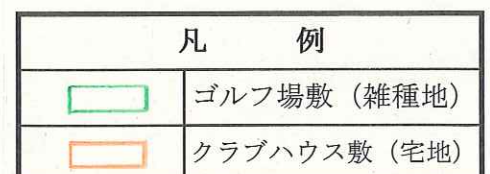 凡 例
ゴルフ場敷（雑種地）
クラブハウス敷（宅地）